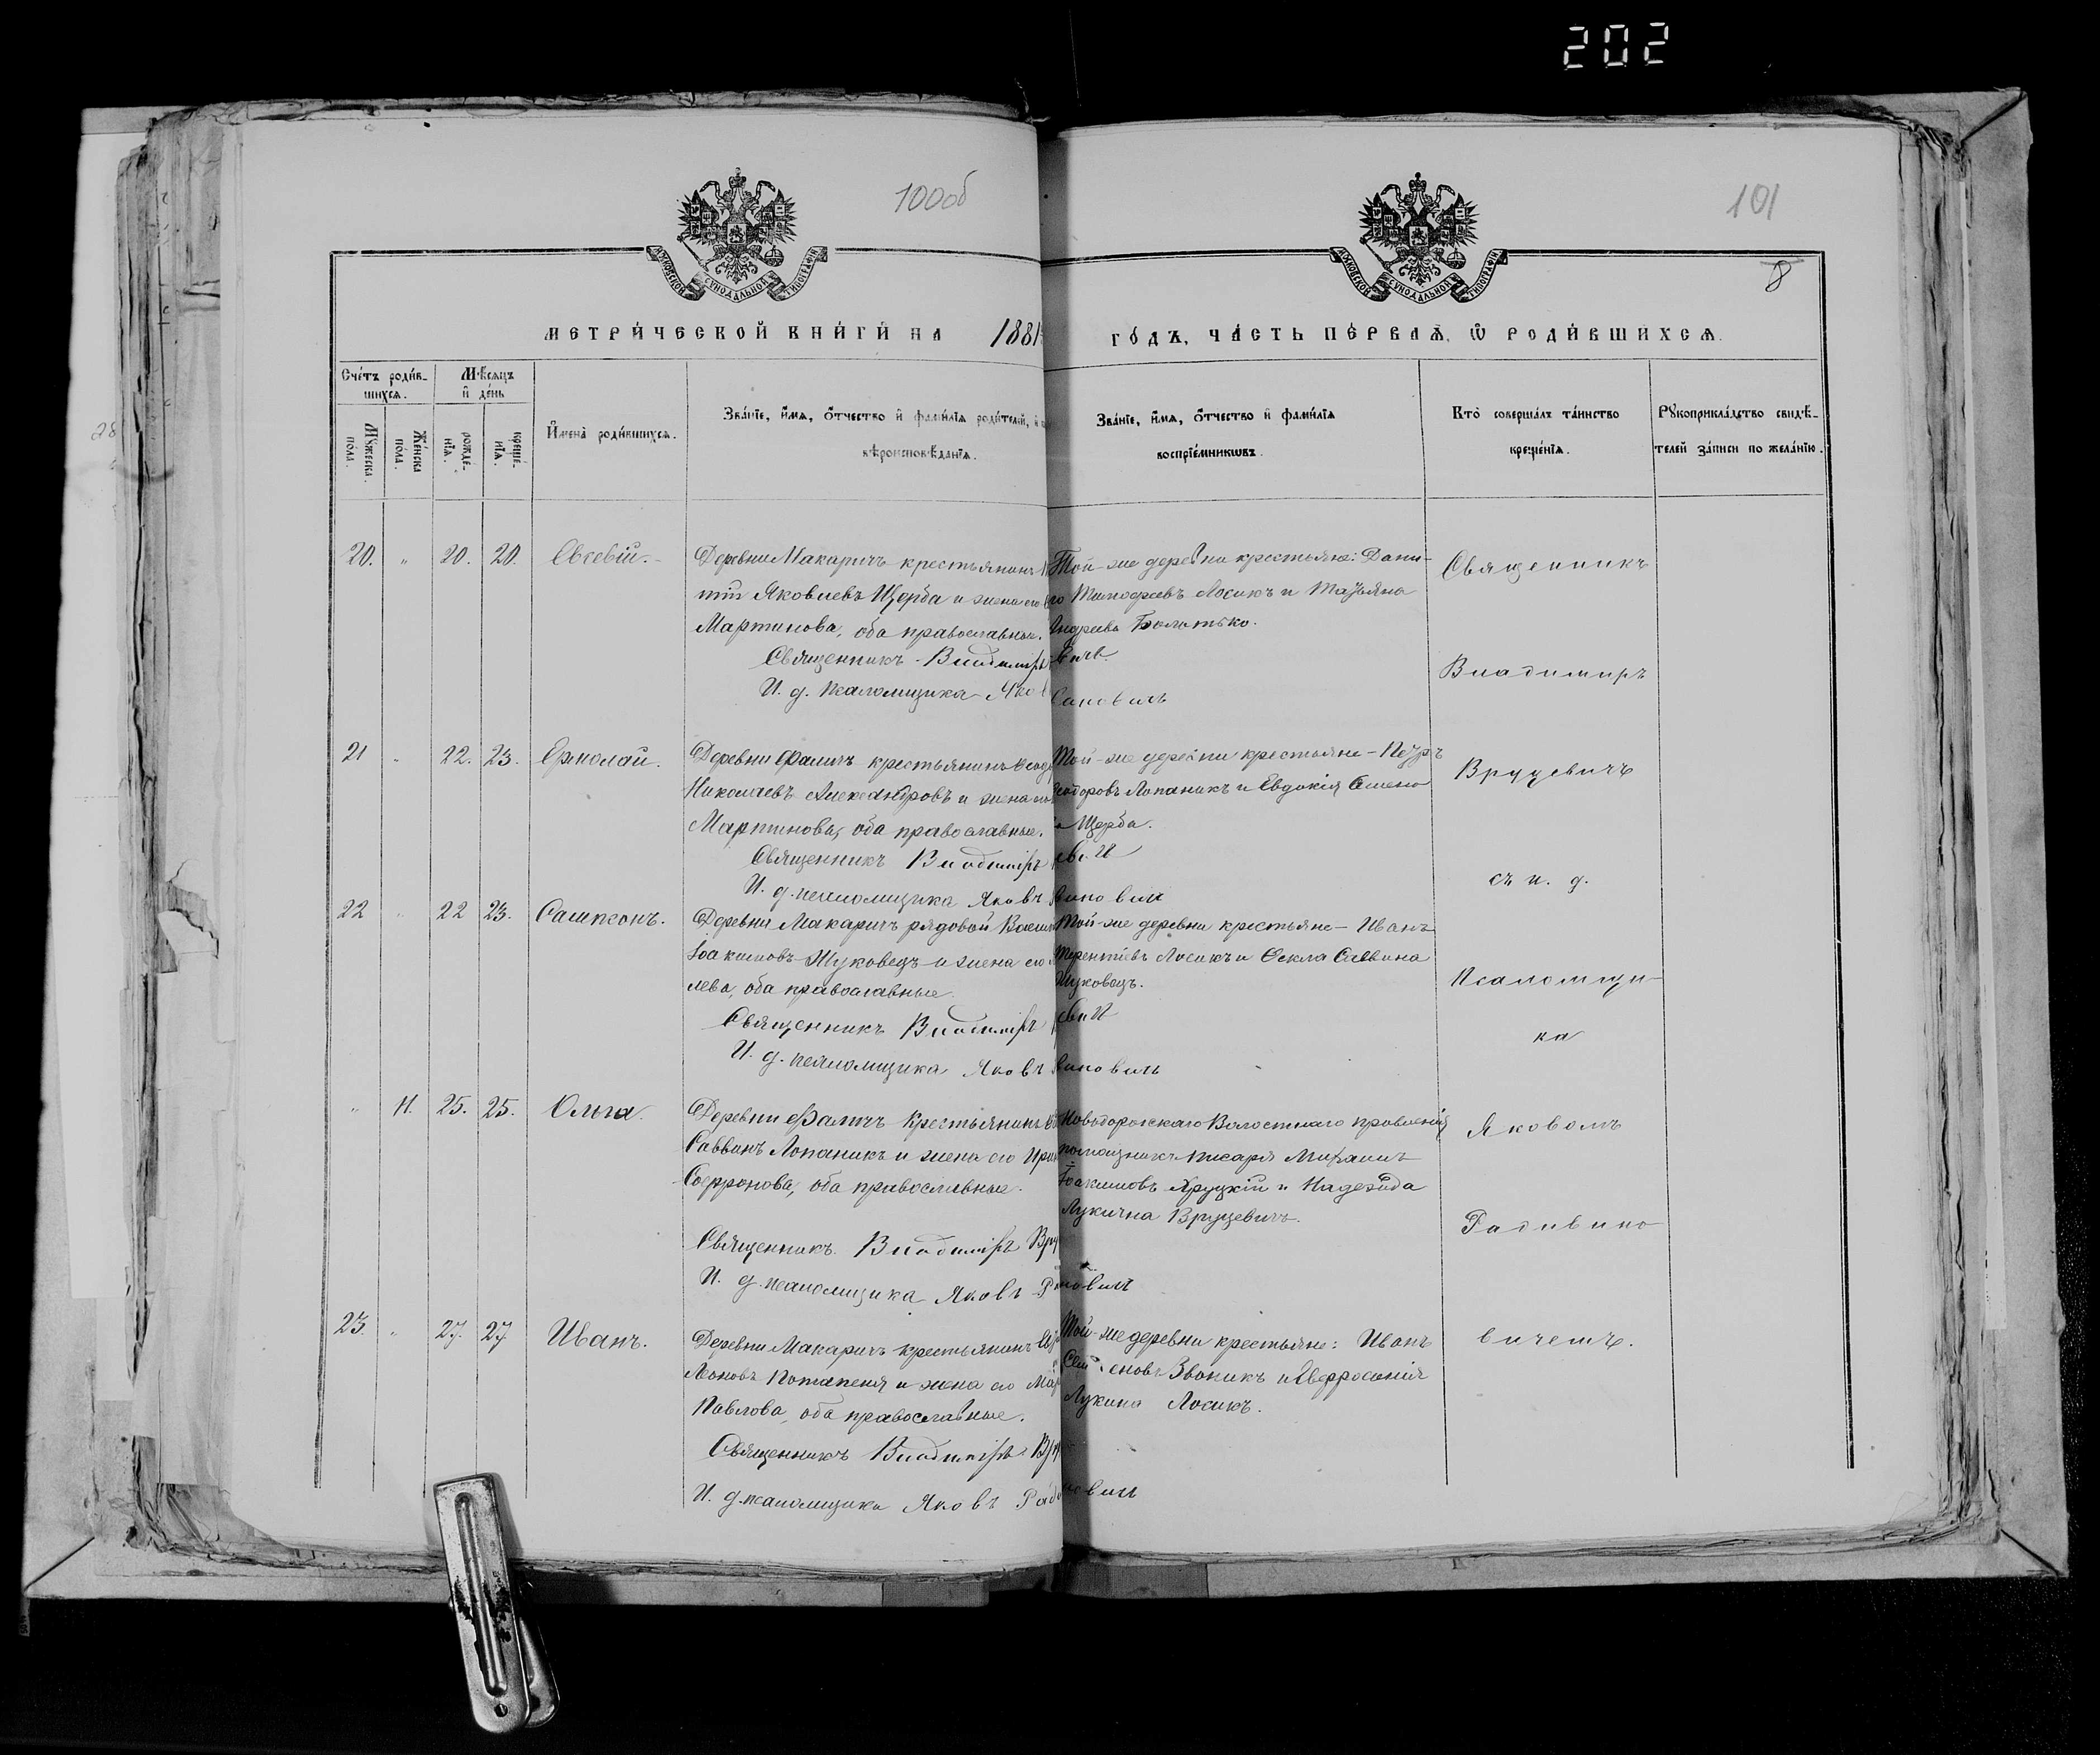 202
100об
101
8
МОСКОВСКОЙ СѴНОДАЛЬНОЙ ТИПОГРАФІИ
МОСКОВСКОЙ СѴНОДАЛЬНОЙ ТИПОГРАФІИ
МЕТРИ́ЧЕСКОЙ КНИ́ГИ НА 1881
ГО́ДЪ, ЧА́СТЬ ПЕ́РВАЯ, Ѿ РОДИ́ВШИХСЯ.
Сче́тъ роди́в-
шихся.
Мѣ́сяцъ
и де́нь
Мꙋ́жеска по́ла.
Же́нска по́ла.
рожде́-
нїя.
креще́-
нїя.
И҆мена̀ роди́вшихся.
Зва́нїе, и҆́мя, ѻ҆́тчество и҆ фами́лїя роди́телей, и҆
вѣроисповѣ́данїя.
Зва́нїе, и҆́мя, ѻ҆́тчество и҆ фами́лїя
воспрїе́мникѡвъ.
Кто̀ соверша́лъ та́инство
креще́нїя.
Рꙋкоприкла́дство свидѣ́-
телей за́писи по жела́нїю.
20. „ 20. 20. Евсевій.
Деревни Макаричъ крестьянинъ
Яковлевъ Щерба и жена его
Мартинова, оба православные.
Священникъ Владиміръ
И. д. псаломщика Яков
Той-же деревни крестьяне: Дани-
Тимофеевъ Лосикъ и Татьяна
Андреева Болотько.
21 „ 22. 23. Ермолай.
Деревни Фаличъ крестьянинъ Феод
Николаевъ Александровъ и жена его
Мартинова, оба православные.
Священникъ Владиміръ
И. д. псаломщика Яковъ
Той-же деревни крестьяне – Петръ
Феодоровъ Лопаникъ и Евдокія Семено
ва Щерба.
22 „ 22 23. Сампсонъ.
Деревни Макаричъ рядовой Васил
Іоакимовъ Жуковецъ и жена его
лева, оба православные.
Священникъ Владиміръ
И. д. псаломщика Яковъ
Той-же деревни крестьяне – Иванъ
Терентіевъ Лосикъ и Фекла Саввина
Жуковецъ.
„ 11. 25. 25. Ольга.
Деревни Фаличъ крестьянинъ
Саввинъ Лопаникъ и жена его Ирин
Софронова, оба православные.
Священникъ Владиміръ Вру
И. д. псаломщика Яковъ Ра
Новодорожскаго Волостнаго правленія
помощникъ писаря Михаилъ
Іоакимовъ Хруцкій и Надежда
Лукична Вруцевичъ.
23. „ 27. 27 Иванъ.
Деревни Макаричъ крестьянинъ
Леоновъ Потапеня и жена его Мар
Павлова, оба православные.
Священникъ Владиміръ Вру
И. д. псаломщика Яковъ Радзи
новичъ
Той-же деревни крестьяне: Иванъ
Семеновъ Звоникъ и Евфросинія
Лукина Лосикъ.
Священникъ
Владимиръ
Вруцевичъ
съ и. д.
Псаломщи-
ка
Яковомъ
Радзивино
вичемъ.